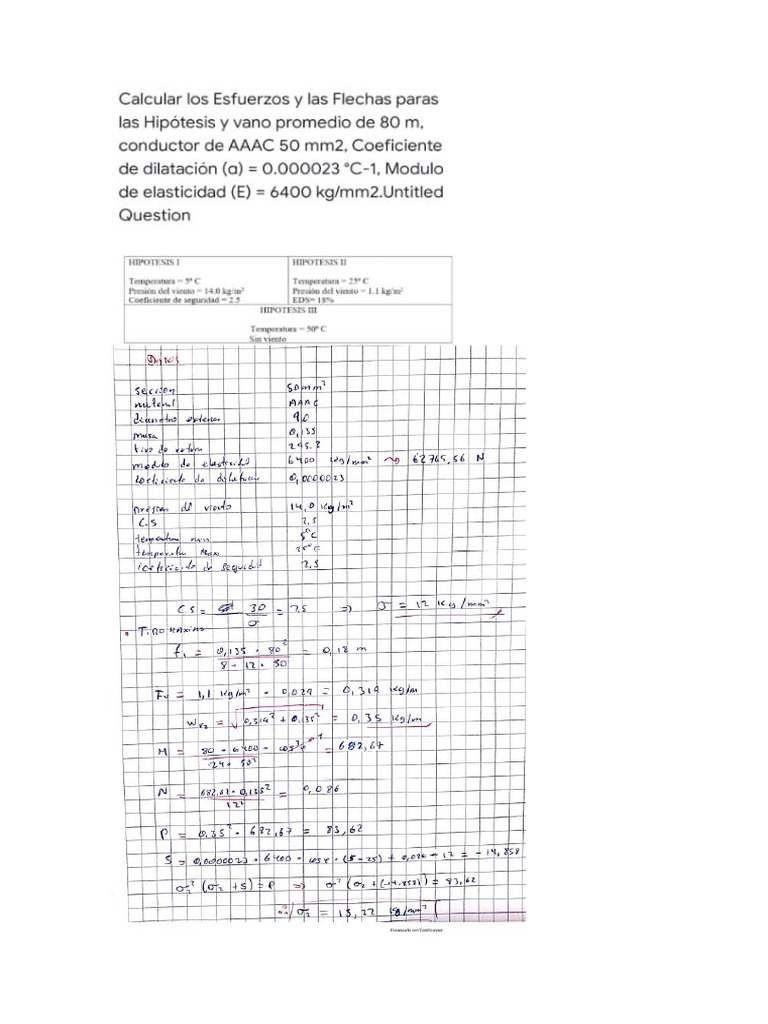 Calcular los Esfuerzos y las Flechas paras
las Hipótesis y vano promedio de 80 m,
conductor de AAAC 50 mm2, Coeficiente
de dilatación (α) = 0.000023 °C-1, Modulo
de elasticidad (E) = 6400 kg/mm2.Untitled
Question
HIPOTESIS I
Temperatura = 5° C
Presión del viento = 14.0 kg/m²
Coeficiente de seguridad = 2.5
HIPOTESIS II
Temperatura = 25° C
Presión del viento = 1.1 kg/m²
EDS= 18%
HIPOTESIS III
Temperatura = 50° C
Sin viento
Datos
sección 50 mm²
material AAAC
diametro exterior 9,0
masa 0,135
tiro de rotura 295.8
modulo de elasticidad 6400 kg/mm² ~> 62765,56 N
coeficiente de dilatacion 0,0000023
presion del viento 14,0 kg/m²
C.S 2,5
temperatura min 5°C
temperatura max 25°C
coeficiente de seguridad 2,5
CS = 30/σ = 2.5 => σ = 12 kg/mm²
• TIRO MAXIMO
f₁ = 0,135 · 80² / 8 · 12 · 50 = 0,18 m
Fv = 1,1 kg/m² · 0,029 = 0,319 kg/m
Wr2 = √0,319² + 0,135² = 0,35 kg/m
M = 80 · 6400 · cos³ / 24 · 50² = 682,67
N = 682,67 · 0,135² / 12² = 0,086
P = 0,35² · 682,67 = 83,62
S = 0,0000023 · 6400 · cos · (5 - 25) + 0,086 - 12 = - 14,858
σ₂² (σ₂ + S) = P => σ² (σ₂ + (-14,858)) = 83,62
∴ σ₂ = 15,22 kg/mm²